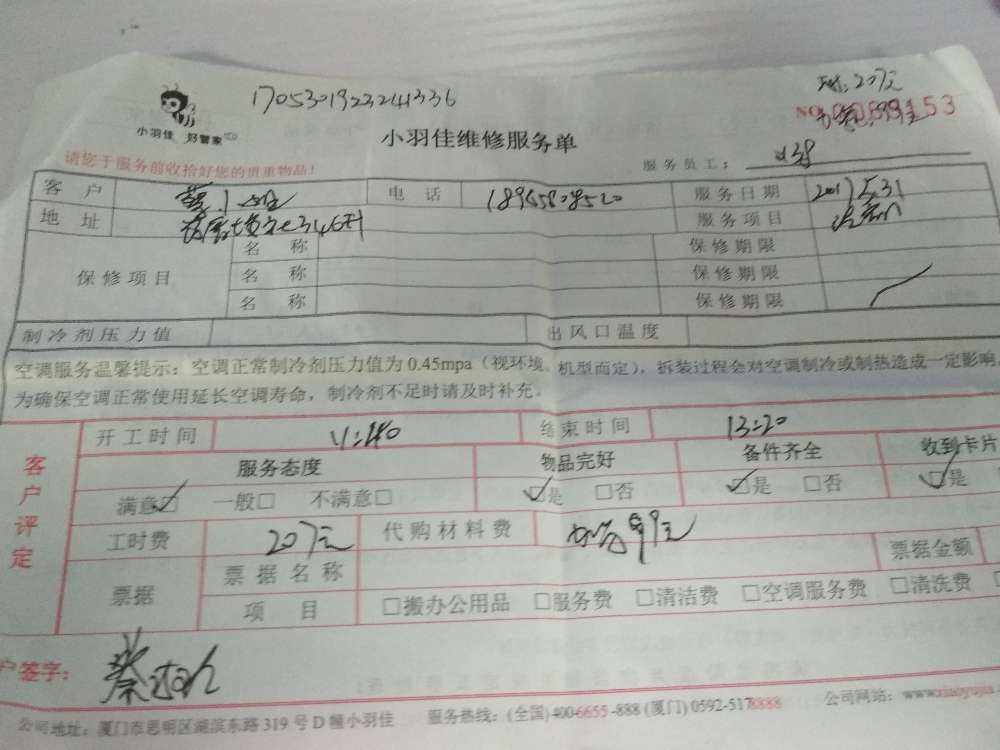 1705301923241336
207元
小羽佳 好管家
小羽佳维修服务单
NO 53
请您于服务前收拾好您的贵重物品!
服务员工:
客户 小姐 电话 18965808520 服务日期 2017.5.31
地址 服务项目
保修项目 名称 保修期限
名称 保修期限
名称 保修期限
制冷剂压力值 出风口温度
空调服务温馨提示:空调正常制冷剂压力值为0.45mpa(视环境、机型而定),拆装过程会对空调制冷或制热造成一定影响
为确保空调正常使用延长空调寿命,制冷剂不足时请及时补充。
客户评定
开工时间 11:40 结束时间 13:20
服务态度 物品完好 备件齐全 收到卡片
满意☑ 一般□ 不满意□ ☑是 □否 ☑是 □否 ☑是
工时费 207元 代购材料费 99元
票据 票据名称 票据金额
项目 □搬办公用品 □服务费 □清洁费 □空调服务费 □清洗费
户签字: 蔡
公司地址:厦门市思明区湖滨东路319号D幢小羽佳 服务热线:(全国)400-6655-888(厦门)0592-5178888 公司网站:www.xiaoyujia